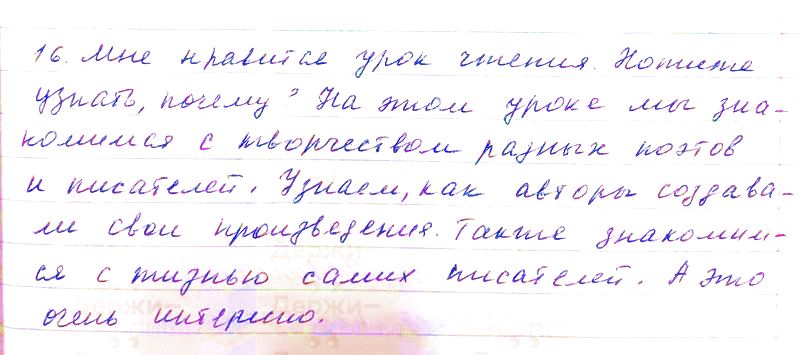 16. Мне нравится урок чтения. Хотите
узнать, почему? На этом уроке мы зна-
комимся с творчеством разных поэтов
и писателей. Узнаем, как авторы создава-
ли свои произведения. Также знакомим-
ся с жизнью самих писателей. А это
очень интерено.